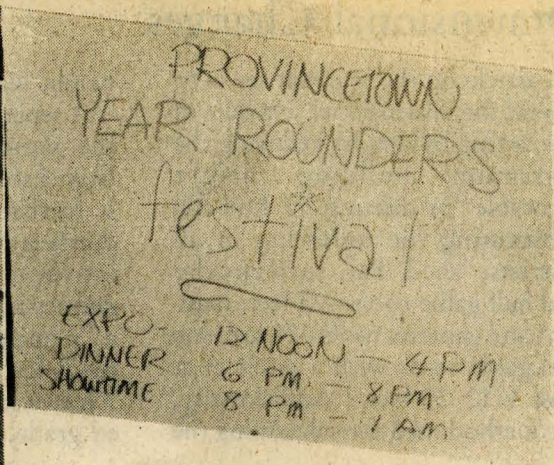 PROVINCETOWN
YEAR ROUNDERS
festival
EXPO- 12 NOON - 4 PM
DINNER 6 PM - 8 PM
SHOWTIME 8 PM - 1 AM